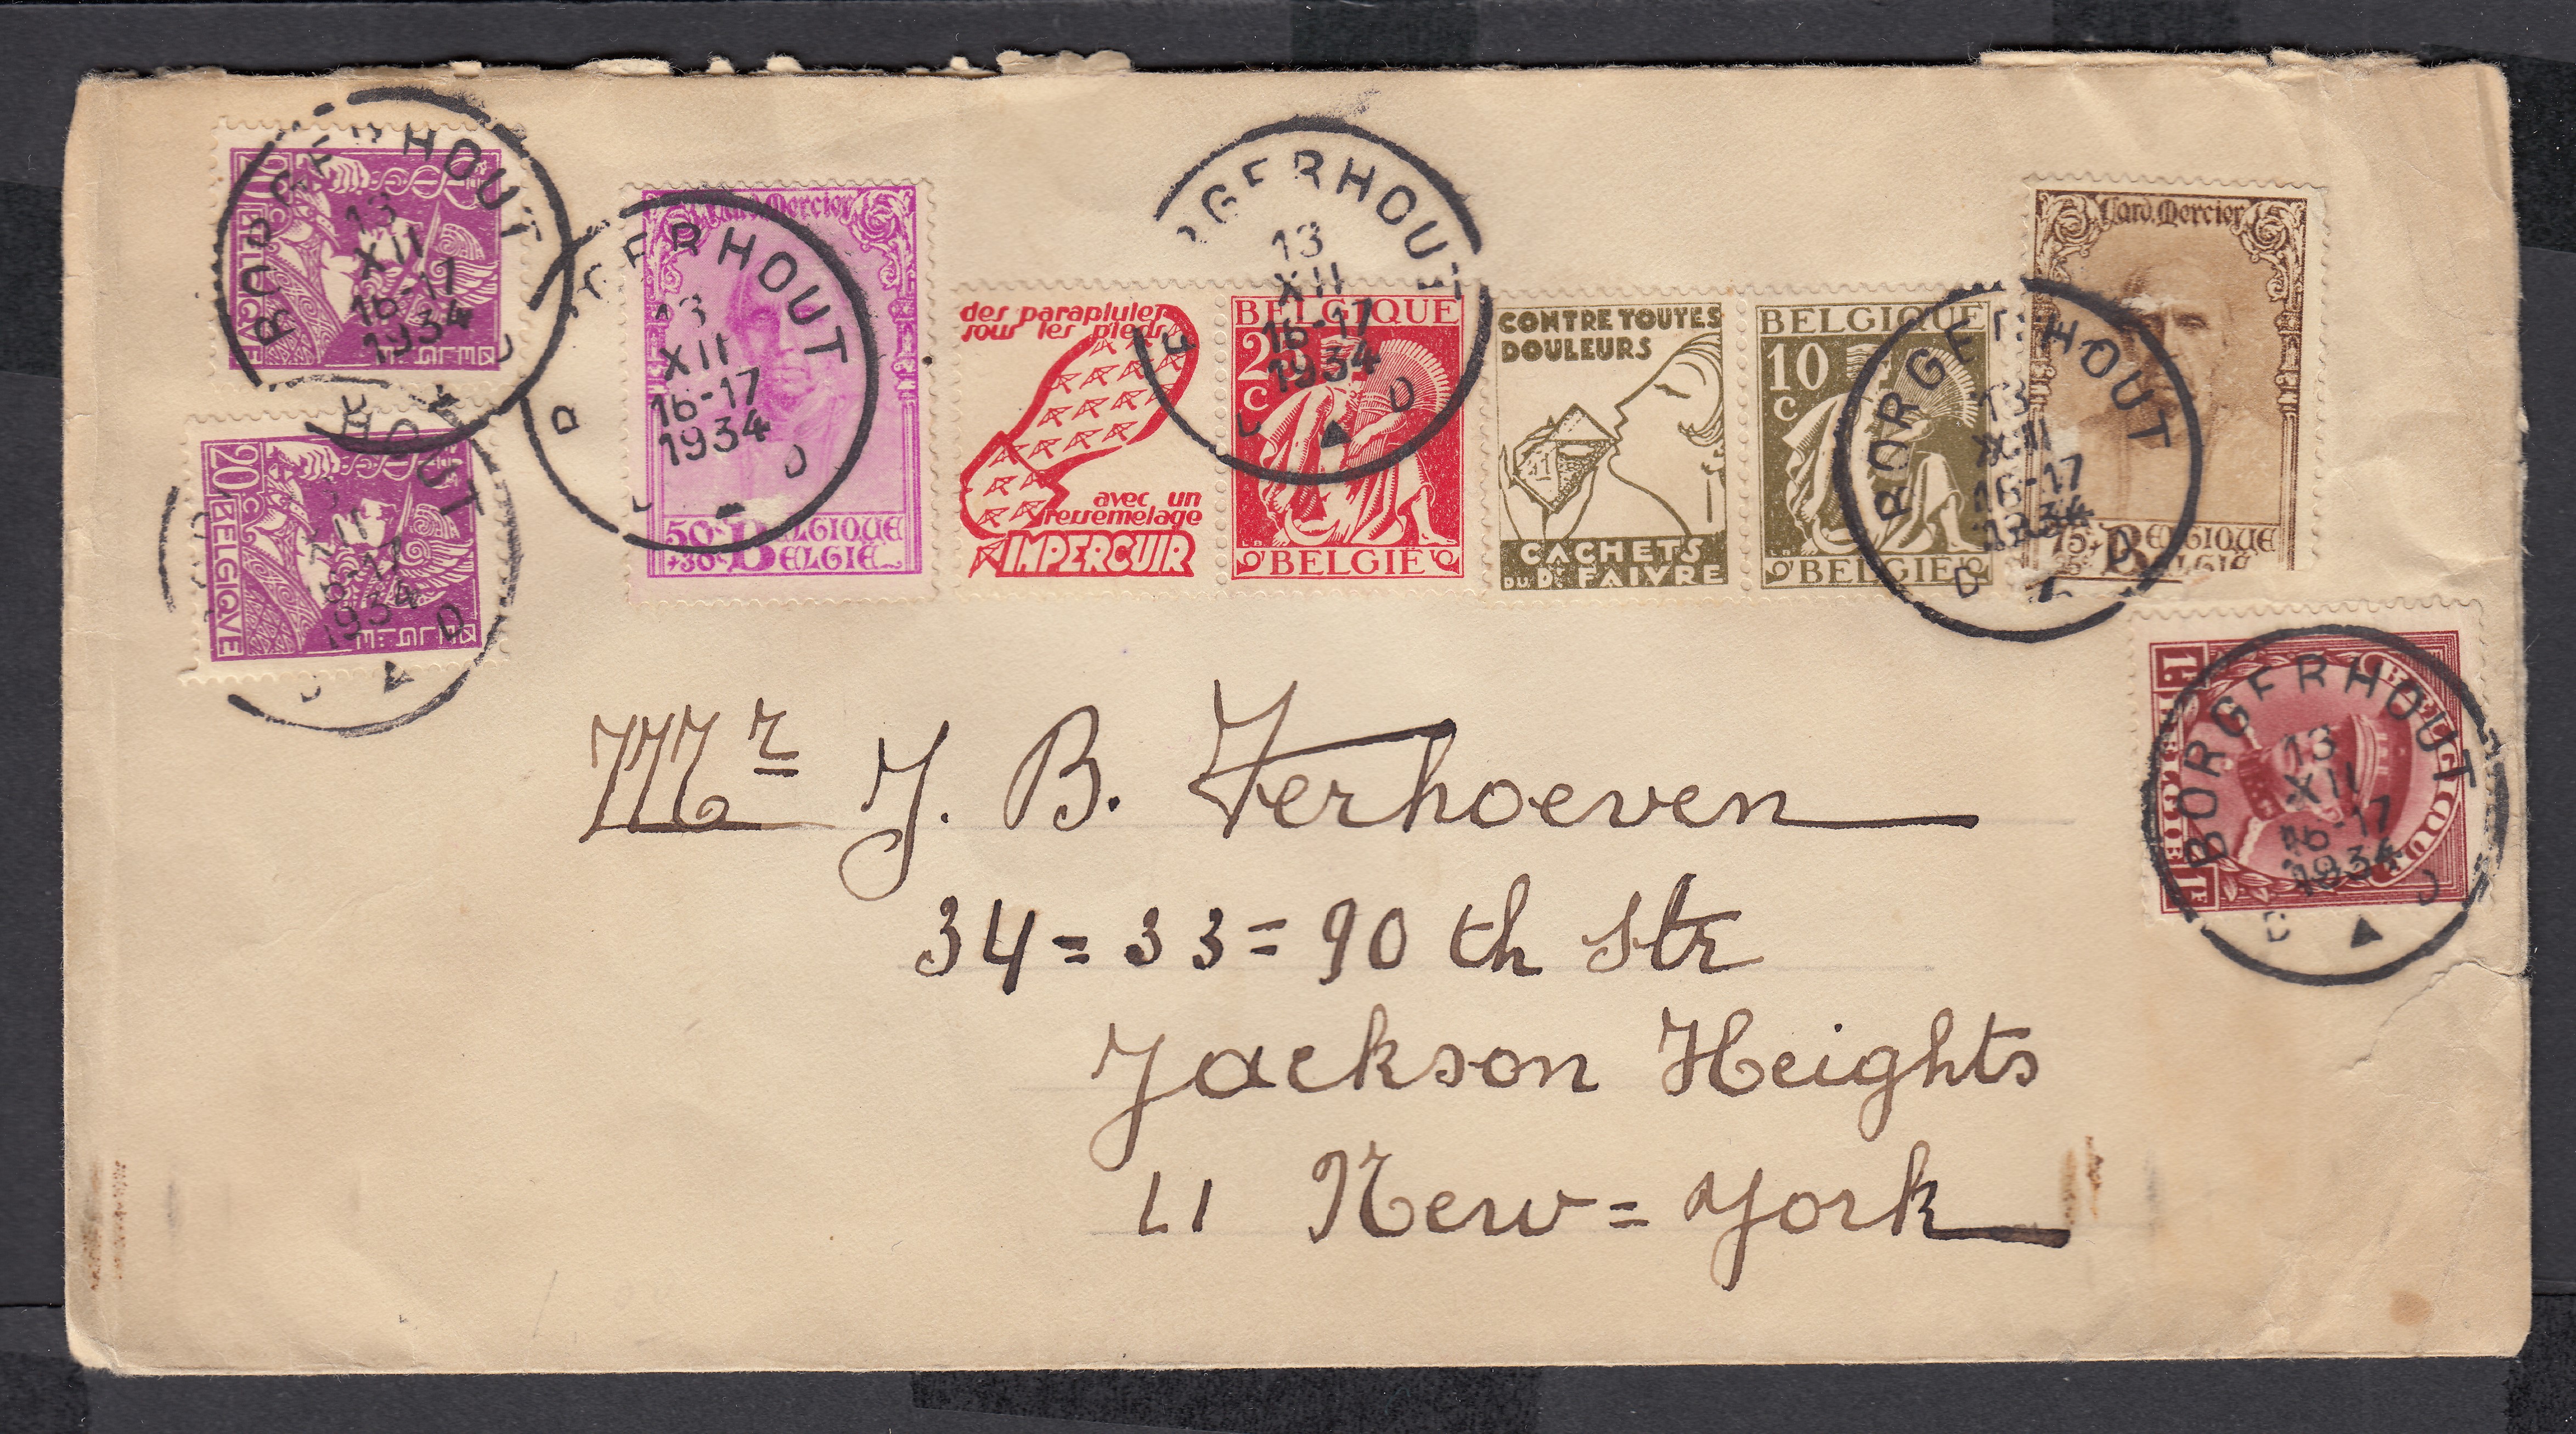 BORGERHOUT
13
XII
16-17
1934
20c
BELGIQVE
HOUT
XII
1934
D
20c
BELGIQVE
GERHOUT
13
XII
16-17
1934
D
Card. Mercier
50c BELGIQUE
+30c BELGIË
des parapluies
sous les pieds
avec un
ressemelage
IMPERCUIR
RGERHOUT
13
XII
16-17
1934
D
BELGIQUE
c
BELGIË
CONTRE TOUTES
DOULEURS
CACHETS
DU DR FAIVRE
BELGIQUE
10
c
BELGIË
BORGERHOUT
13
XII
16-17
1934
D
Card. Mercier
75c
BELGIQUE
BELGIË
BORGERHOUT
13
XII
16-17
1934
1F
BELGIQUE
BELGIE
1F
Mr J. B. Verhoeven
34=33=90 th Str
Jackson Heights
L I New=York